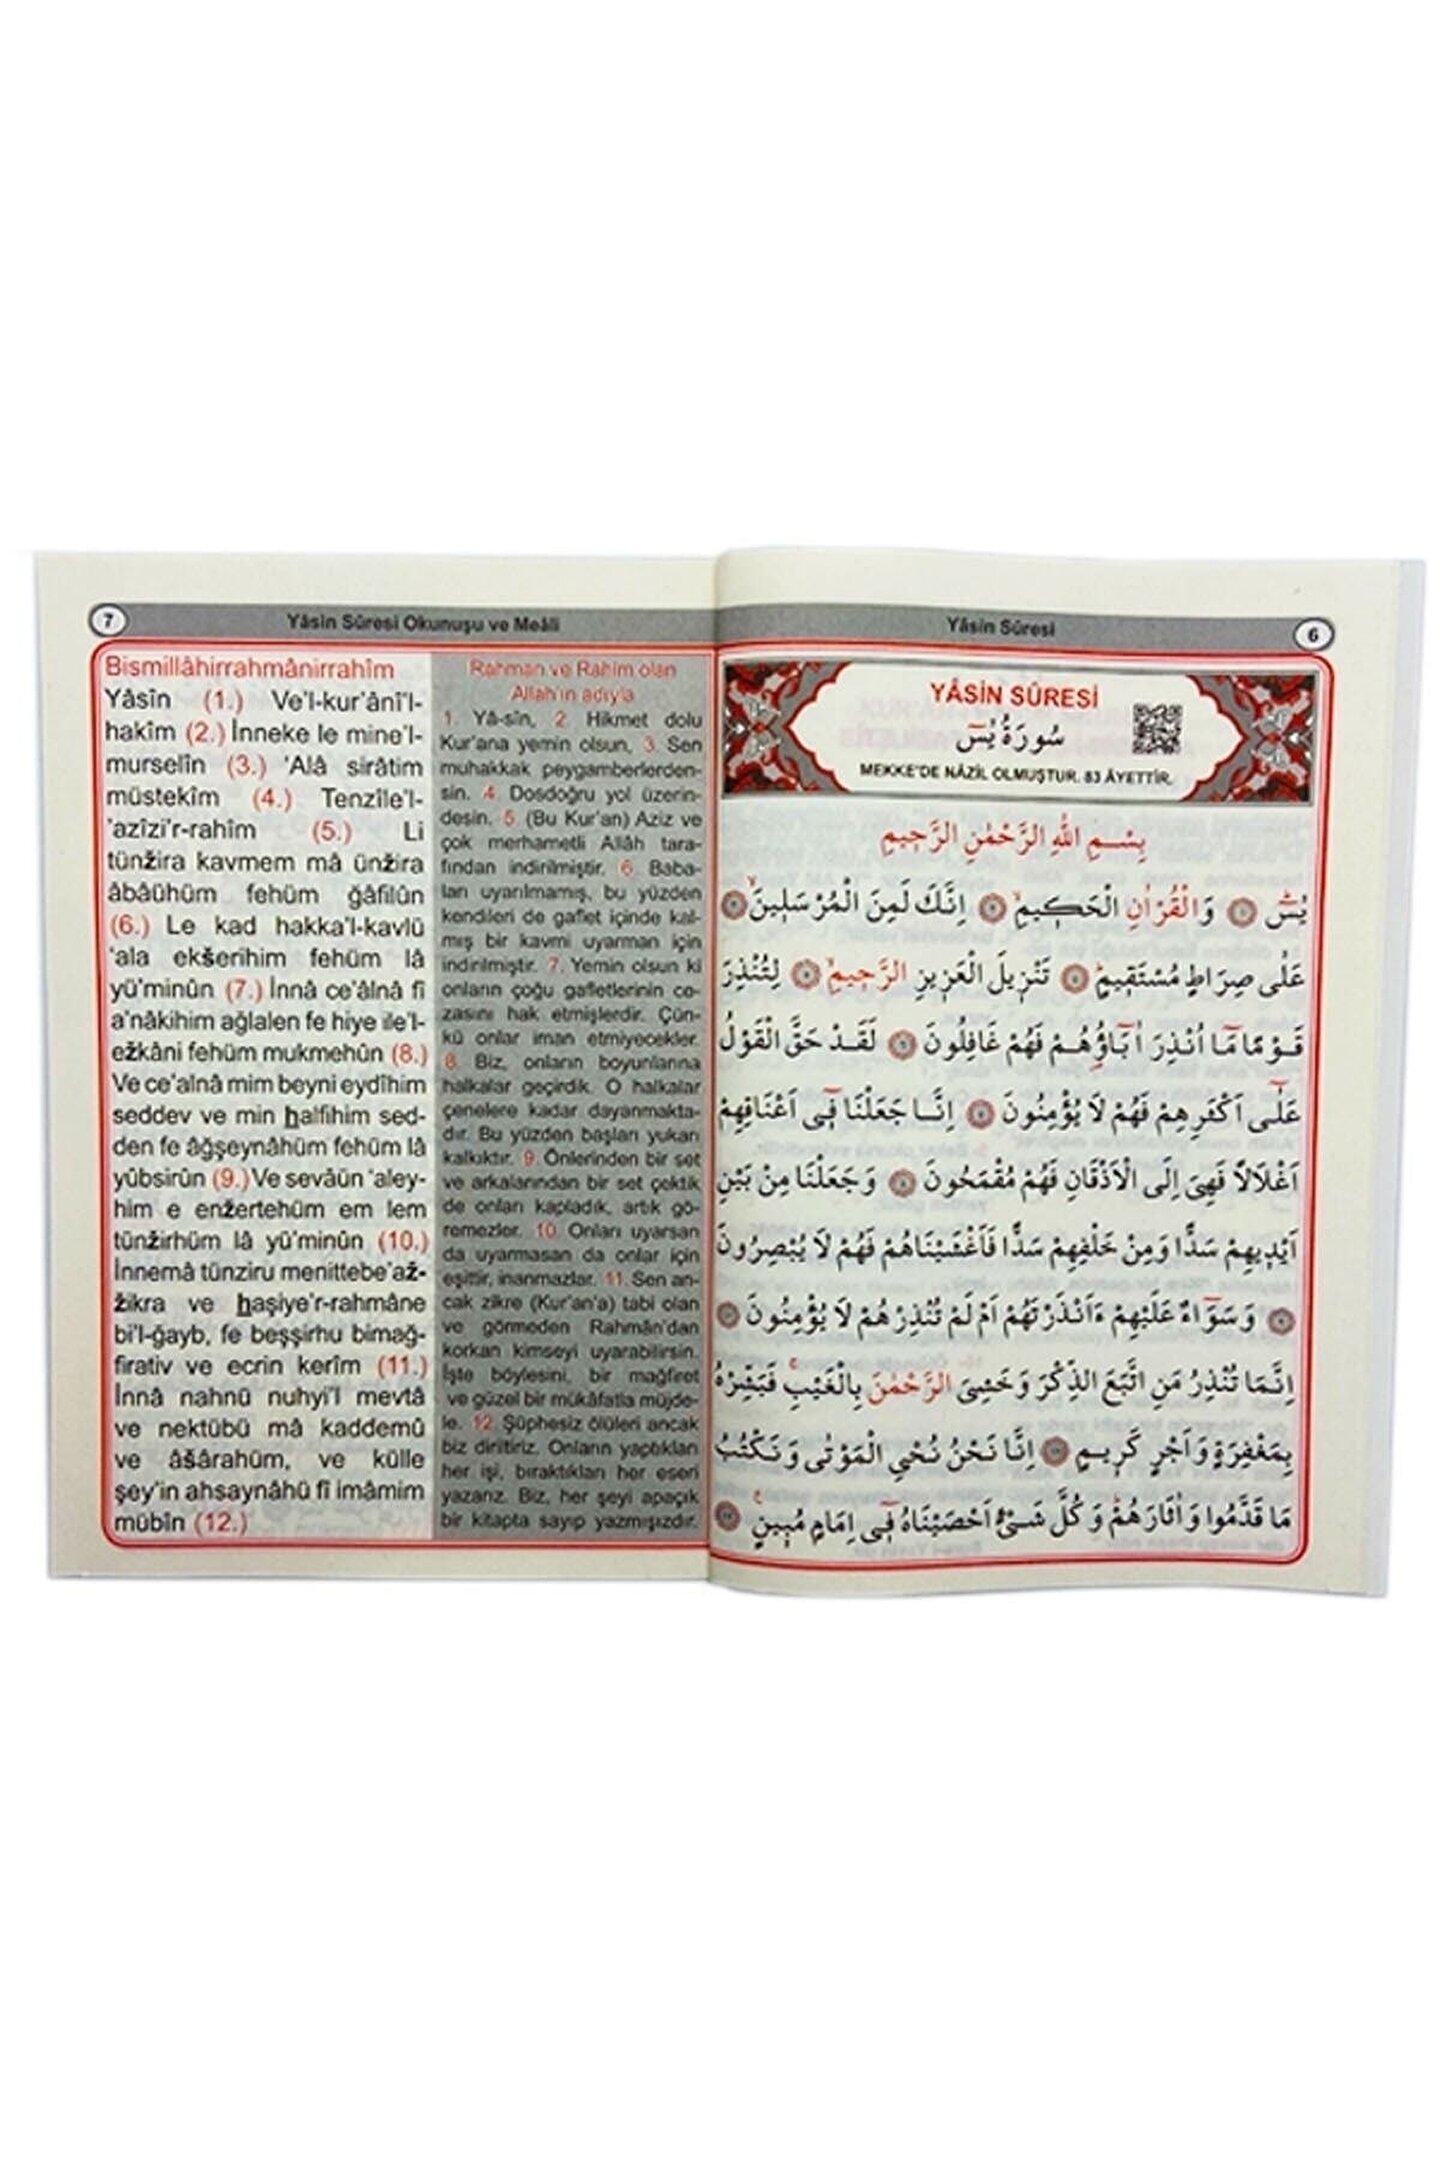 7
Yâsîn Sûresi Okunuşu ve Meâli
Bismillâhirrahmânirrahîm
Yâsîn (1.) Ve'l-kur'ânî'l-
hakîm (2.) İnneke le mine'l-
murselîn (3.) 'Alâ sirâtim
müstekîm (4.) Tenzîle'l-
'azîzi'r-rahîm (5.) Li
tünžira kavmem mâ ünžira
âbâühüm fehüm ğâfilûn
(6.) Le kad hakka'l-kavlü
'ala ekšerihim fehüm lâ
yü'minûn (7.) İnnâ ce'âlnâ fî
a'nâkihim ağlalen fe hiye ile'l-
ežkâni fehüm mukmehûn (8.)
Ve ce'alnâ mim beyni eydîhim
seddev ve min halfihim sed-
den fe âğşeynâhüm fehüm lâ
yûbsirûn (9.) Ve sevâün 'aley-
him e enžertehüm em lem
tünžirhüm lâ yü'minûn (10.)
İnnemâ tünziru menittebe'až-
žikra ve haşiye'r-rahmâne
bi'l-ğayb, fe beşşirhu bimağ-
firativ ve ecrin kerîm (11.)
İnnâ nahnü nuhyi'l mevtâ
ve nektübü mâ kaddemû
ve âšârahüm, ve külle
şey'in ahsaynâhü fî imâmim
mübîn (12.)
Rahman ve Rahîm olan
Allah'ın adıyla
1. Yâ-sîn, 2. Hikmet dolu
Kur'ana yemin olsun, 3. Sen
muhakkak peygamberlerden-
sin. 4. Dosdoğru yol üzerin-
desin. 5. (Bu Kur'an) Aziz ve
çok merhametli Allâh tara-
fından indirilmiştir. 6. Baba-
ları uyarılmamış, bu yüzden
kendileri de gaflet içinde kal-
mış bir kavmi uyarman için
indirilmiştir. 7. Yemin olsun ki
onların çoğu gafletlerinin ce-
zasını hak etmişlerdir. Çün-
kü onlar iman etmiyecekler.
8. Biz, onların boyunlarına
halkalar geçirdik. O halkalar
çenelere kadar dayanmakta-
dır. Bu yüzden başları yukarı
kalkıktır. 9. Önlerinden bir set
ve arkalarından bir set çektik
de onları kapladık, artık gö-
remezler. 10. Onları uyarsan
da uyarmasan da onlar için
eşittir, inanmazlar. 11. Sen an-
cak zikre (Kur'an'a) tabi olan
ve görmeden Rahmân'dan
korkan kimseyi uyarabilirsin.
İşte böylesini, bir mağfiret
ve güzel bir mükâfatla müjde-
le. 12. Şüphesiz ölüleri ancak
biz diriltiriz. Onların yaptıkları
her işi, bıraktıkları her eseri
yazarız. Biz, her şeyi apaçık
bir kitapta sayıp yazmışızdır.
Yâsîn Sûresi
6
YÂSİN SÛRESİ
سُورَةُ يٰسٓ
MEKKE'DE NÂZİL OLMUŞTUR. 83 ÂYETTİR.
بِسْمِ اللّٰهِ الرَّحْمٰنِ الرَّحِيمِ
يٰسٓ ﴿١﴾ وَالْقُرْاٰنِ الْحَكِيمِ ﴿٢﴾ اِنَّكَ لَمِنَ الْمُرْسَلِينَ ﴿٣﴾
عَلٰى صِرَاطٍ مُسْتَقِيمٍ ﴿٤﴾ تَنْزِيلَ الْعَزِيزِ الرَّحِيمِ ﴿٥﴾ لِتُنْذِرَ
قَوْمًا مَٓا اُنْذِرَ اٰبَٓاؤُ۬هُمْ فَهُمْ غَافِلُونَ ﴿٦﴾ لَقَدْ حَقَّ الْقَوْلُ
عَلٰٓى اَكْثَرِهِمْ فَهُمْ لَا يُؤْمِنُونَ ﴿٧﴾ اِنَّا جَعَلْنَا فِٓى اَعْنَاقِهِمْ
اَغْلَالًا فَهِىَ اِلَى الْاَذْقَانِ فَهُمْ مُقْمَحُونَ ﴿٨﴾ وَجَعَلْنَا مِنْ بَيْنِ
اَيْدِيهِمْ سَدًّا وَمِنْ خَلْفِهِمْ سَدًّا فَاَغْشَيْنَاهُمْ فَهُمْ لَا يُبْصِرُونَ
﴿٩﴾ وَسَوَٓاءٌ عَلَيْهِمْ ءَاَنْذَرْتَهُمْ اَمْ لَمْ تُنْذِرْهُمْ لَا يُؤْمِنُونَ ﴿١٠﴾
اِنَّمَا تُنْذِرُ مَنِ اتَّبَعَ الذِّكْرَ وَخَشِىَ الرَّحْمٰنَ بِالْغَيْبِ فَبَشِّرْهُ
بِمَغْفِرَةٍ وَاَجْرٍ كَرِيمٍ ﴿١١﴾ اِنَّا نَحْنُ نُحْىِ الْمَوْتٰى وَنَكْتُبُ
مَا قَدَّمُوا وَاٰثَارَهُمْ وَكُلَّ شَىْءٍ اَحْصَيْنَاهُ فِٓى اِمَامٍ مُبِينٍ ﴿١٢﴾